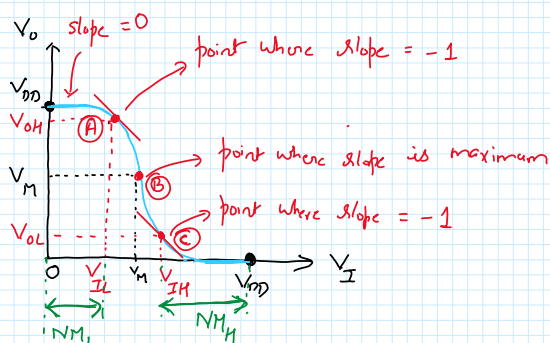 V₀ slope = 0
point where slope = -1
V_DD
V_OH
A
V_M
B
point where slope is maximum
C
point where slope = -1
V_OL
0
V_IL
V_M
V_IH
V_DD
V_I
NM_H